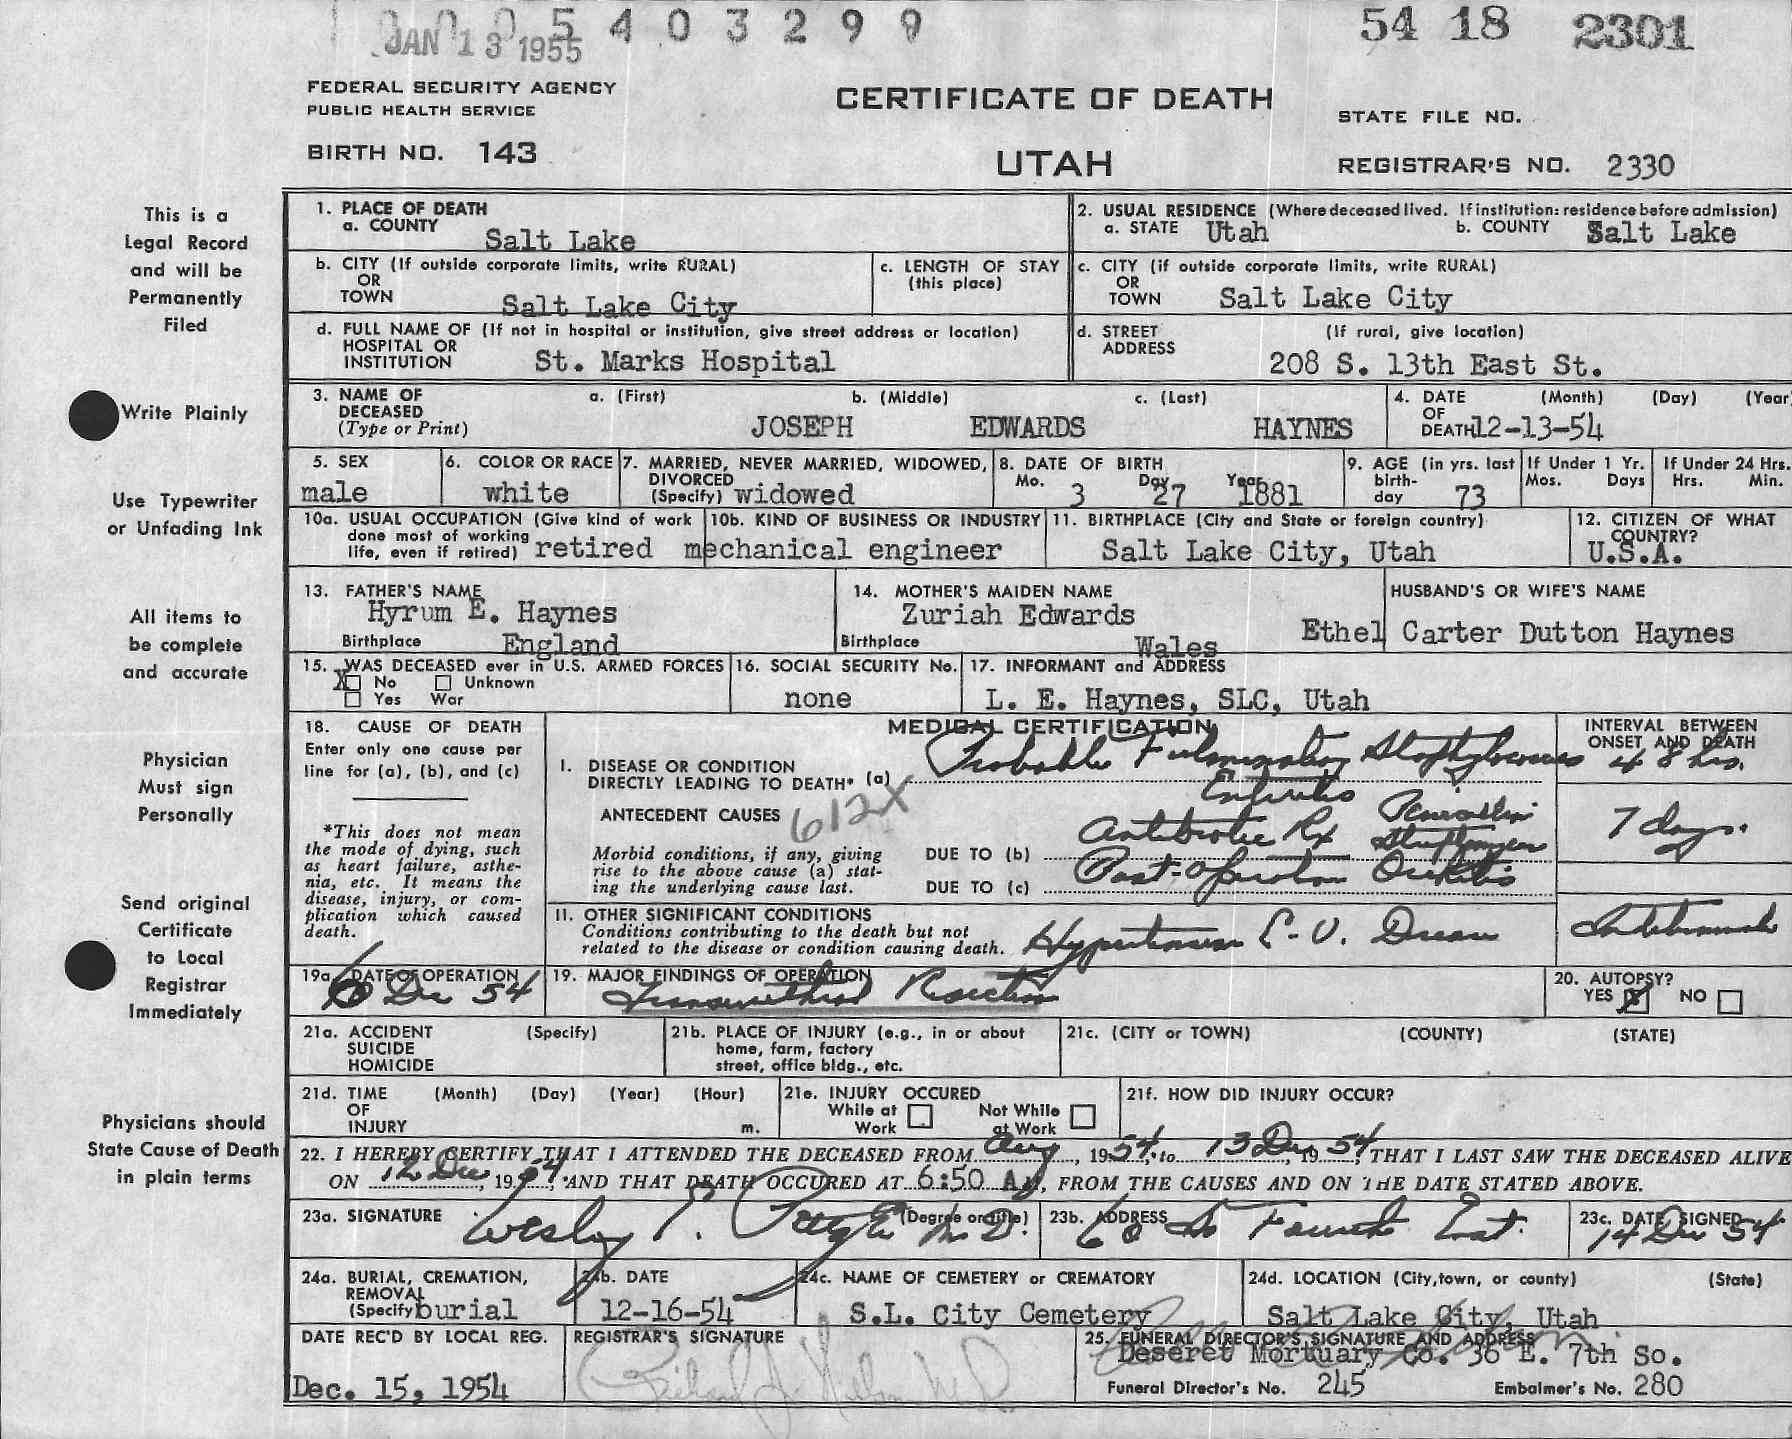 JAN 13 1955 5 4 0 3 2 9 9
54 18 2301
FEDERAL SECURITY AGENCY
PUBLIC HEALTH SERVICE
CERTIFICATE OF DEATH
STATE FILE NO.
BIRTH NO. 143
UTAH
REGISTRAR'S NO. 2330
This is a
Legal Record
and will be
Permanently
Filed
Write Plainly
Use Typewriter
or Unfading Ink
All items to
be complete
and accurate
Physician
Must sign
Personally
Send original
Certificate
to Local
Registrar
Immediately
Physicians should
State Cause of Death
in plain terms
1. PLACE OF DEATH
a. COUNTY Salt Lake
2. USUAL RESIDENCE (Where deceased lived. If institution: residence before admission)
a. STATE Utah b. COUNTY Salt Lake
b. CITY (If outside corporate limits, write RURAL)
OR
TOWN Salt Lake City
c. LENGTH OF STAY
(this place)
c. CITY (if outside corporate limits, write RURAL)
OR
TOWN Salt Lake City
d. FULL NAME OF (If not in hospital or institution, give street address or location)
HOSPITAL OR
INSTITUTION St. Marks Hospital
d. STREET (If rural, give location)
ADDRESS 208 S. 13th East St.
3. NAME OF a. (First) b. (Middle) c. (Last)
DECEASED
(Type or Print) JOSEPH EDWARDS HAYNES
4. DATE (Month) (Day) (Year)
OF
DEATH 12-13-54
5. SEX
male
6. COLOR OR RACE
white
7. MARRIED, NEVER MARRIED, WIDOWED,
DIVORCED
(Specify) widowed
8. DATE OF BIRTH
Mo. 3 Day 27 Year 1881
9. AGE (in yrs. last
birth-
day 73
If Under 1 Yr.
Mos. Days
If Under 24 Hrs.
Hrs. Min.
10a. USUAL OCCUPATION (Give kind of work
done most of working
life, even if retired) retired mechanical engineer
10b. KIND OF BUSINESS OR INDUSTRY
11. BIRTHPLACE (City and State or foreign country)
Salt Lake City, Utah
12. CITIZEN OF WHAT
COUNTRY?
U.S.A.
13. FATHER'S NAME
Hyrum E. Haynes
Birthplace England
14. MOTHER'S MAIDEN NAME
Zuriah Edwards
Birthplace Wales
HUSBAND'S OR WIFE'S NAME
Ethel Carter Dutton Haynes
15. WAS DECEASED ever in U.S. ARMED FORCES
X No Unknown
Yes War
16. SOCIAL SECURITY No.
none
17. INFORMANT and ADDRESS
L. E. Haynes, SLC, Utah
18. CAUSE OF DEATH
Enter only one cause per
line for (a), (b), and (c)
*This does not mean
the mode of dying, such
as heart failure, asthe-
nia, etc. It means the
disease, injury, or com-
plication which caused
death.
MEDICAL CERTIFICATION
INTERVAL BETWEEN
ONSET AND DEATH
I. DISEASE OR CONDITION
DIRECTLY LEADING TO DEATH* (a) Probable Fulminating Staphylococcus 48 hrs.
Enteritis
ANTECEDENT CAUSES 612X
Morbid conditions, if any, giving
rise to the above cause (a) stat-
ing the underlying cause last.
DUE TO (b) Antibiotic Rx Penicillin
Streptomycin 7 days.
DUE TO (c) Post-operative
II. OTHER SIGNIFICANT CONDITIONS
Conditions contributing to the death but not
related to the disease or condition causing death. Hypertensive C-V. Disease
19a. DATE OF OPERATION
6 Dec 54
19. MAJOR FINDINGS OF OPERATION
Transurethral Resection
20. AUTOPSY?
YES X NO
21a. ACCIDENT (Specify)
SUICIDE
HOMICIDE
21b. PLACE OF INJURY (e.g., in or about
home, farm, factory
street, office bldg., etc.
21c. (CITY or TOWN) (COUNTY) (STATE)
21d. TIME (Month) (Day) (Year) (Hour)
OF
INJURY m.
21e. INJURY OCCURED
While at Work Not While at Work
21f. HOW DID INJURY OCCUR?
22. I HEREBY CERTIFY THAT I ATTENDED THE DECEASED FROM Aug, 1954, to 13 Dec, 1954, THAT I LAST SAW THE DECEASED ALIVE
ON 12 Dec, 1954, AND THAT DEATH OCCURED AT 6:50 A M, FROM THE CAUSES AND ON THE DATE STATED ABOVE.
23a. SIGNATURE (Degree or title)
Wesley M.D.
23b. ADDRESS
68 So Fourth East.
23c. DATE SIGNED
14 Dec 54
24a. BURIAL, CREMATION,
REMOVAL
(Specify) burial
24b. DATE
12-16-54
24c. NAME OF CEMETERY or CREMATORY
S.L. City Cemetery
24d. LOCATION (City, town, or county) (State)
Salt Lake City, Utah
DATE REC'D BY LOCAL REG.
Dec. 15, 1954
REGISTRAR'S SIGNATURE
25. FUNERAL DIRECTOR'S SIGNATURE AND ADDRESS
Deseret Mortuary Co. 36 E. 7th So.
Funeral Director's No. 245 Embalmer's No. 280